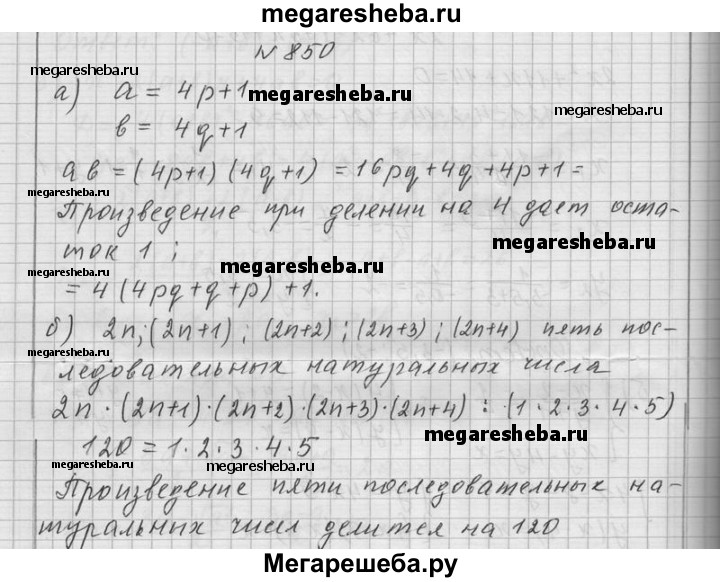 megaresheba.ru
N 850
megaresheba.ru
а) a = 4p+1
megaresheba.ru
megaresheba.ru
b = 4q+1
ab = (4p+1) (4q+1) = 16pq+4q+4p+1=
megaresheba.ru
Произведение при делении на 4 дает оста-
ток 1 ;
megaresheba.ru
megaresheba.ru
megaresheba.ru
= 4 (4pq+q+p) +1.
б) 2n; (2n+1) ; (2n+2) ; (2n+3) ; (2n+4) пять пос-
megaresheba.ru
ледовательных натуральных числа
2n · (2n+1) · (2n+2) · (2n+3) · (2n+4) : (1 · 2 · 3 · 4 · 5)
megaresheba.ru
120 = 1 · 2 · 3 · 4 · 5
megaresheba.ru
megaresheba.ru
megaresheba.ru
Произведение пяти последовательных на-
туральных чисел делится на 120
Мегарешеба.ру